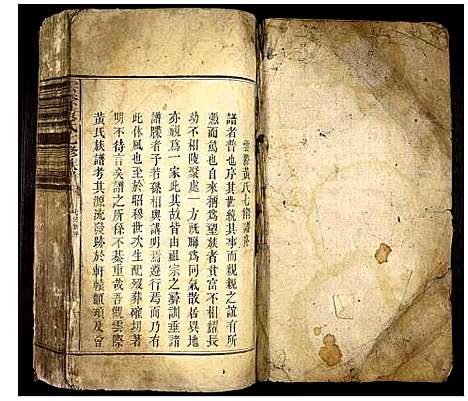 雲際黃氏七脩譜序
譜者普也序其世統其事而親親之誼有所
憑而篤也自來稱為望族者貧富不相耀長
幼不相陵聚處一方旣聯為同氣散居異地
亦視為一家此其故皆由祖宗之彞訓垂諸
譜牒者子若孫相與講明焉遵行焉而乃有
此休風也至於昭穆世次生配裂葬確切著
明不待言矣譜之所係不綦重哉吾觀雲際
黃氏族譜考其源流發跡於軒轅顓頊及合